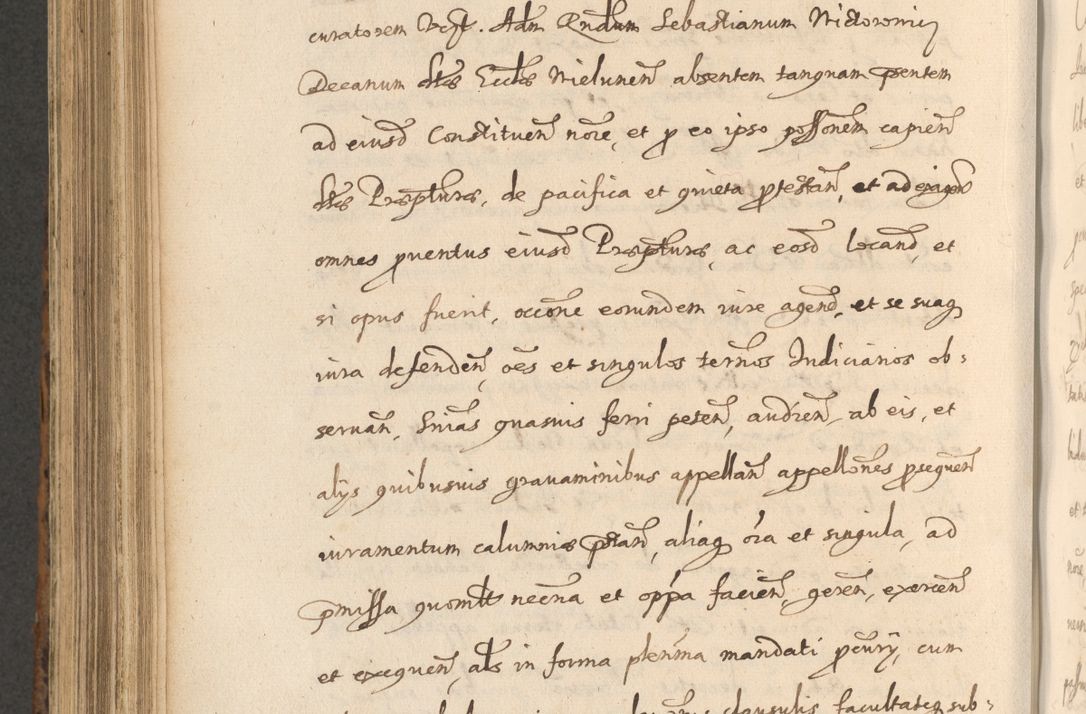 curatorem Vest. Adm Rndum Sebastianum Nietoronic
Decanum dtes Eccles Wielunen absentem tanquam pentem
ad eiusd Constituen nore, et p eo ipso possonem capien
dtes Prepturs, de pacifica et quieta ptestan, et ad exigen
omnes puentus eiusd Prepturs, ac eosd locand, et
si opus fuerit, occone eorundem iure agend, et se suaq
iura defenden, oes et singulos ternos Iudiciarios ob-
seruan, Snias quasuis ferri peten, audien, ab eis, et
alys quibusuis grauaminibus appellan appellones psequen
iuramentum calumnie pstan, aliaq oia et singula, ad
pmissa quomlt necria et oppa facien, geren, exercen
et exequen, als in forma plenma mandati pcury, cum
clausulis facultateq sub-